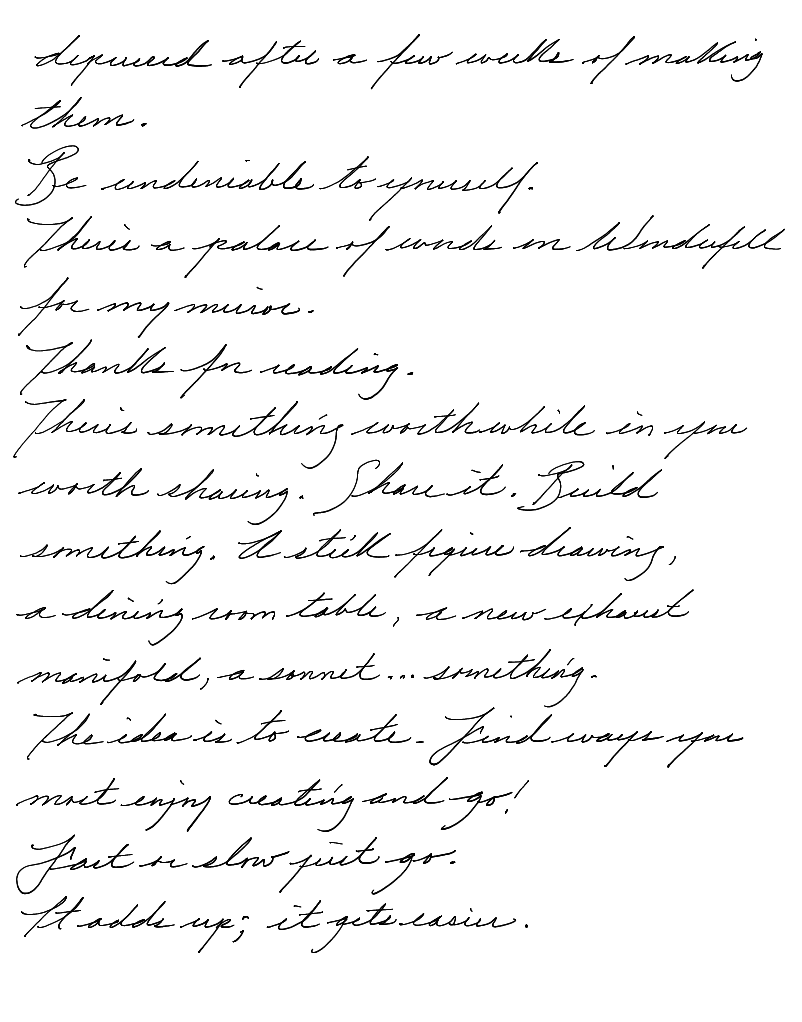 depressed after a few weeks of making
them.
Be undeniable to yourself.
There's a palace of words in Wonderfell
for my mirror.
Thanks for reading.
There's something worthwhile in you
worth sharing. Share it. Build
something. A stick figure drawing,
a dining room table, a new exhaust
manifold, a sonnet... something.
The idea is to create. Find ways you
most enjoy creating and go!
Fast or slow just go.
It adds up; it gets easier.